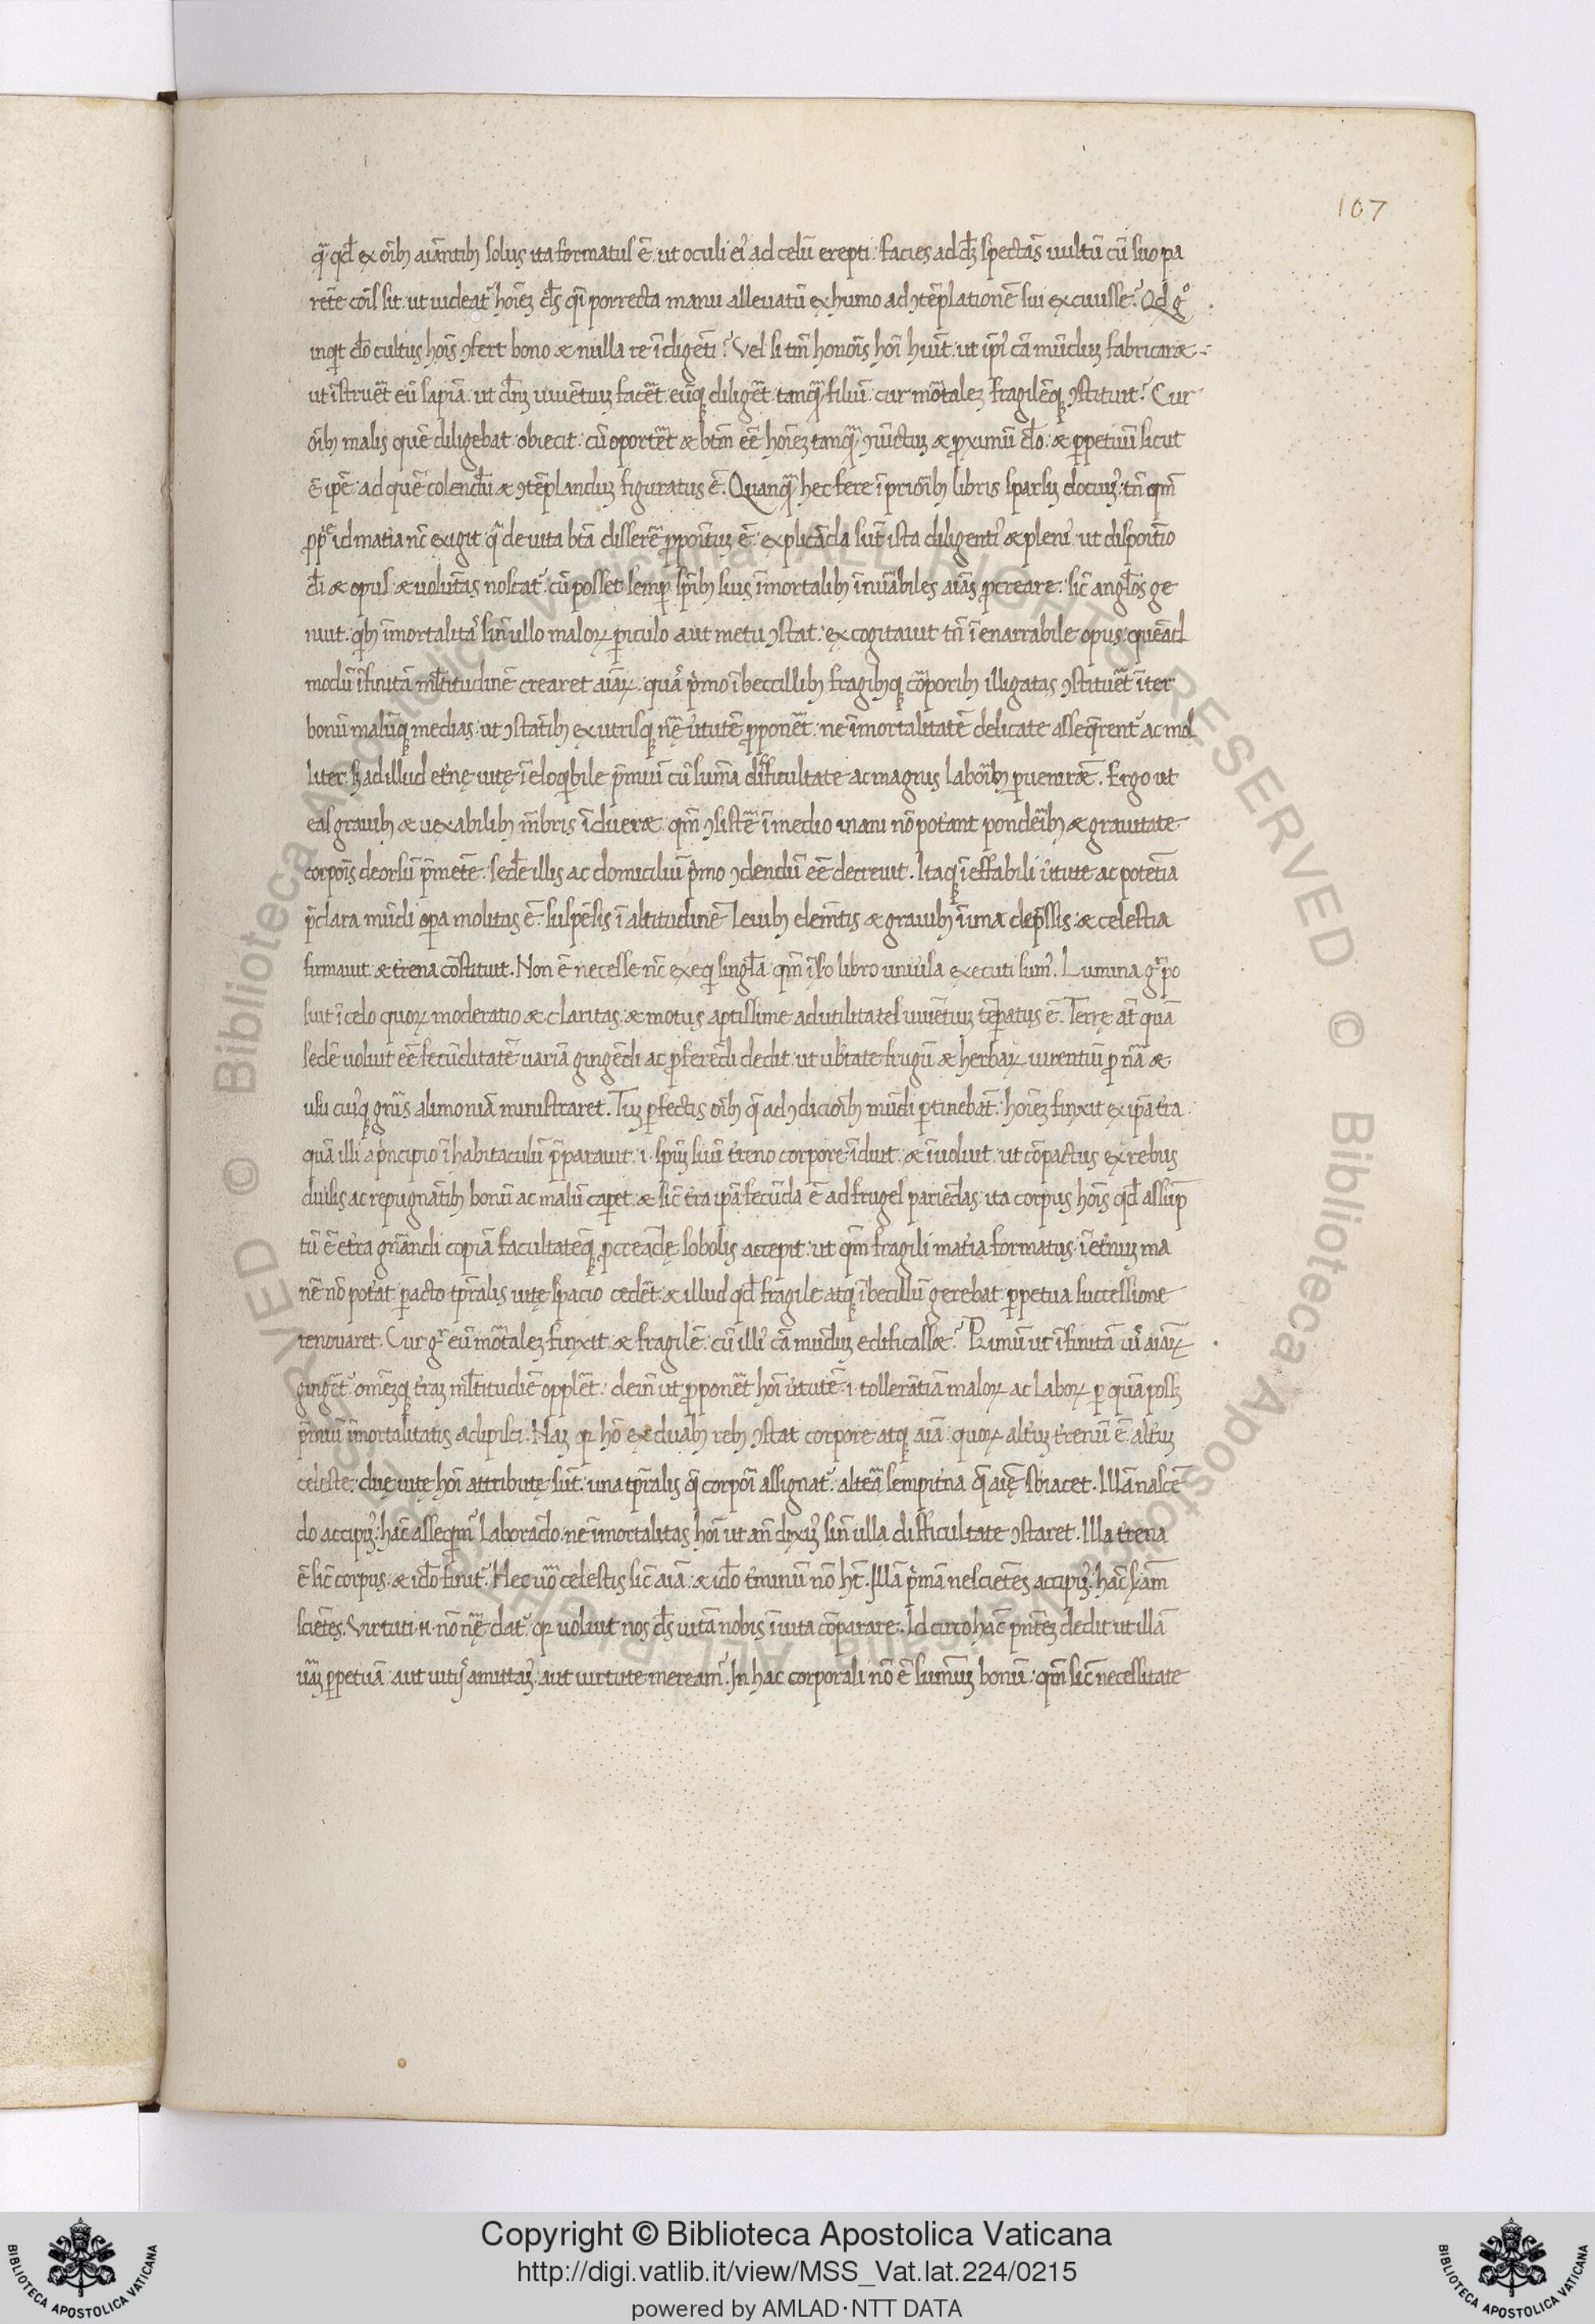 107
q̄ qd̄ ex oīb; aīantib; solus ita formatus ē. ut oculi ei' ad celū erepti. facies ad dȝ spectās vultū cū suo pa
rēte cōis sit. ut videat' hoīeȝ ds̄ qi porrecta manu allevatū ex humo ad ↄtēplationē sui excuisse? Qd gº
inqt dō cultus hoīs ↄfert bono & nulla re īdigēti? Vel si tm̄ honoīs hoī huīt. ut ip̄i cā mūduȝ fabricaræ
ut īstruēt eū sapiā. ut dn̄ȝ viventuȝ facēt. eūq; diligēt tanq̄ filiū. cur mōtaleȝ fragilēq; ↄstituit? Cur
oīb; malis quē diligebat obiecit. cū oportēt & btm̄ eē hoīeȝ tanq̄ ↄiūctuȝ & ꝓximū dō. & ꝑpetuū sicut
ē ipē. ad quē colendū & ↄtēplanduȝ figuratus ē. Quanq̄ hec fere ī prioīb; libris sparsȝ docui'. tn̄ qm̄
ꝓp̄e id mat'ia nc̄ exigit. q̄ de vita btā disserē ꝓpoituȝ ē. explicāda sūt ista diligenti' & pleni'. ut dispoitio
dī & opus & volūtas noscat'. cū posset semꝑ spīb; suis īmortalib; īnuāabiles aīas ꝓcreare. sic̄ angl̄os ge
nuit. qb; īmortalitā sin̄ ullo maloꝝ ꝑiculo aut metu ↄstat. excogitavit tn̄ ī enarrabile opus. quēad
modū īfinitā ml̄titudinē crearet aīaꝝ. quā' pmo ībecillib; fragib;q; cōporib; illigatas ↄstituēt īter
bonū malūq; medias. ut ↄstātib; ex utrisq; nr̄ę v'tutē ꝓponēt. ne īmortalitatē delicate asseqrent' ac mol
liter. sȝ ad illud et'nę vitę ī eloqbile p̄miū cū suma difficultate ac magnis laboīb; ꝑveniræ. Ergo ut
eas gravib; & vexabilib; m̄bris īdueræ qm̄ ↄsistē ī medio inani nō pot'ant pondēib; & gravitate
corpoīs deorsū p̄mēte. sedē illis ac domiciliū pmo ↄdendū eē decrevit. Itaq; ī effabili v'tute ac potētia
p̄clara mūdi oꝑa molitus ē. suspēsis ī altitudinē levib; elemtis & gravib; īima dep̄ssis. & celestia
firmavit & t'rena cōstituit. Non ē necesse nc̄ exeqi singl̄a qm̄ ī so libro univ'sa executi sum'. Lumina g' po
suit ī celo quoꝝ moderatio & claritas & motus aptissime ad utilitates vivētuȝ tēperatus ē. Terrę at quā
sedē voluit eē fecūditatē variā gingēdi ac ꝓferēdi dedit. ut ub'tate frugū & herbaꝝ virentiū ꝓ nā &
usu cui'q; gn̄is alimoniā ministraret. Tuȝ ꝑfectis oīb; q̄ ad ↄdicioīb; mūdi ꝑtinebāt. hoīeȝ finxit ex ipa t'ra
quā illi a pncipio ī habitaculū p̄paravit. i. spūȝ suū t'reno corpore īduit. & īvolvit. ut cōpactus ex rebus
div'sis ac repugnātib; bonū ac malū caꝑet. & sic̄ t'ra ipa fecūda ē ad fruges pariēdas. ita corpus hoīs qd̄ assūp
tū ē et'ra gn̄andi copiā facultatēq; ꝓcreādę sobolis accepit. ut qm̄ fragili mat'ia formatus ī et'nuȝ ma
nē nō pot'at ꝑacto tꝑalis vitę spacio cedēt. & illud qd̄ fragile atq; ībecillū gerebat ꝑpetua successione
renovaret. Cur g' eū mōtaleȝ finxit & fragilē. cū illi' cā mūduȝ edificassæ? Pimū ut īfinitā vī aīaꝝ
gingēt. omēȝq; t'raȝ ml̄titudiē opplēt. dein̄ ut ꝓponēt hoī v'tutē. i. tollerātiā maloꝝ ac laboꝝ ꝑ quā possȝ
p̄miū īmortalitatis adipisci. Naȝ qr hō ex duab; reb; ↄstat corpore atq; aīa. quoꝝ alt'uȝ t'renū ē alt'uȝ
celeste. duę vitę hoī attributę sūt. una tꝑalis q̄ corpoī assignat'. altēa sempit'na q̄ aīę sbiacet. Illā nascē
do accipi'. hac̄ asseqm' laborādo. ne īmortalitas hoī ut an̄ dixi' sin̄ ulla difficultate ↄstaret. Illa t'rena
ē sic̄ corpus. & idō finit'. Hec vō celestis sic̄ aīa. & idō t'minū nō ht̄. Illā pmā nesciētes accipi'. hac̄ sȝām
sciētes. Virtuti .n. nō nr̄ę dat'. qr voluit nos ds̄ vitā nobis ī vita cōparare. Id circo hac̄ pn̄tēȝ dedit ut illā
vāȝ ꝑpetuā aut vitij' amittaȝ'. aut virtute meream'. In hac corporali nō ē sumūȝ bonū. qm̄ sic̄ necessitate
Copyright © Biblioteca Apostolica Vaticana
http://digi.vatlib.it/view/MSS_Vat.lat.224/0215
powered by AMLAD·NTT DATA